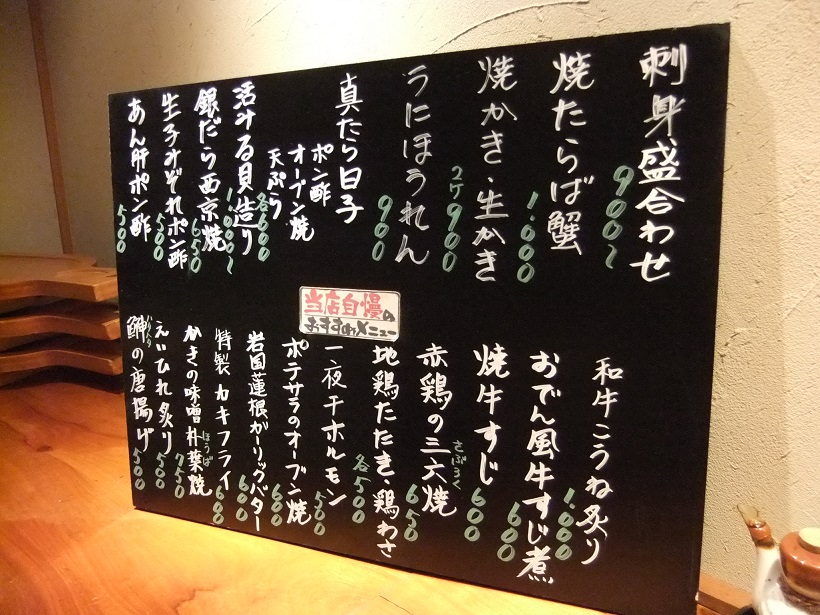 刺身盛合わせ
900〜
焼たらば蟹
1.000
焼かき・生かき
2ケ900
うにほうれん
900
真たら白子
ポン酢
オーブン焼
天ぷら
各600
活みる貝造り
1.000〜
銀だら西京焼
650
生子みぞれポン酢
500
あん肝ポン酢
500
当店自慢の
おすすめメニュー
和牛こうね炙り
1.000
おでん風牛すじ煮
600
焼牛すじ
600
赤鶏の三六焼
さぶろく
650
地鶏たたき・鶏わさ
各500
一夜干ホルモン
500
ポテサラのオーブン焼
600
岩国蓮根ガーリックバター
600
特製カキフライ
600
かきの味噌朴葉焼
ほうば
750
えいひれ炙り
500
の唐揚げ
500